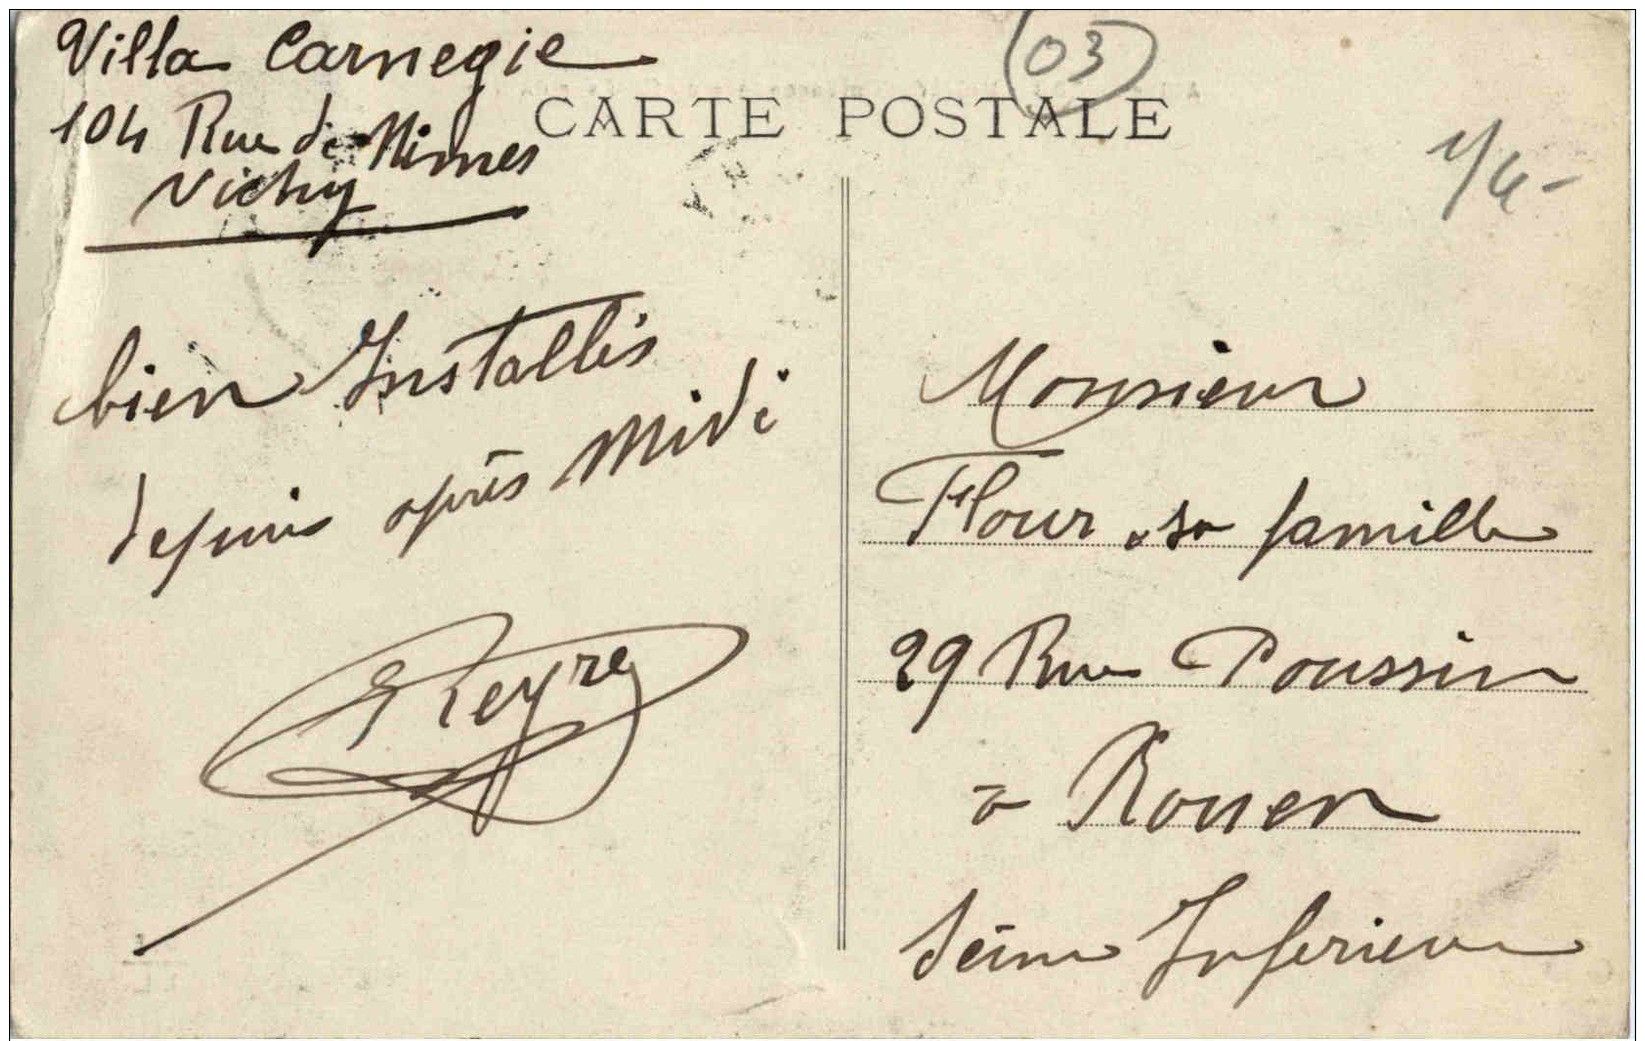 Villa Carnegie
104 Rue de Nimes
Vichy
CARTE POSTALE
03
bien Installés
depuis après Midi
Reyre
Monsieur
Flour sa famille
29 Rue Poussin
à Rouen
Seine Inferieure